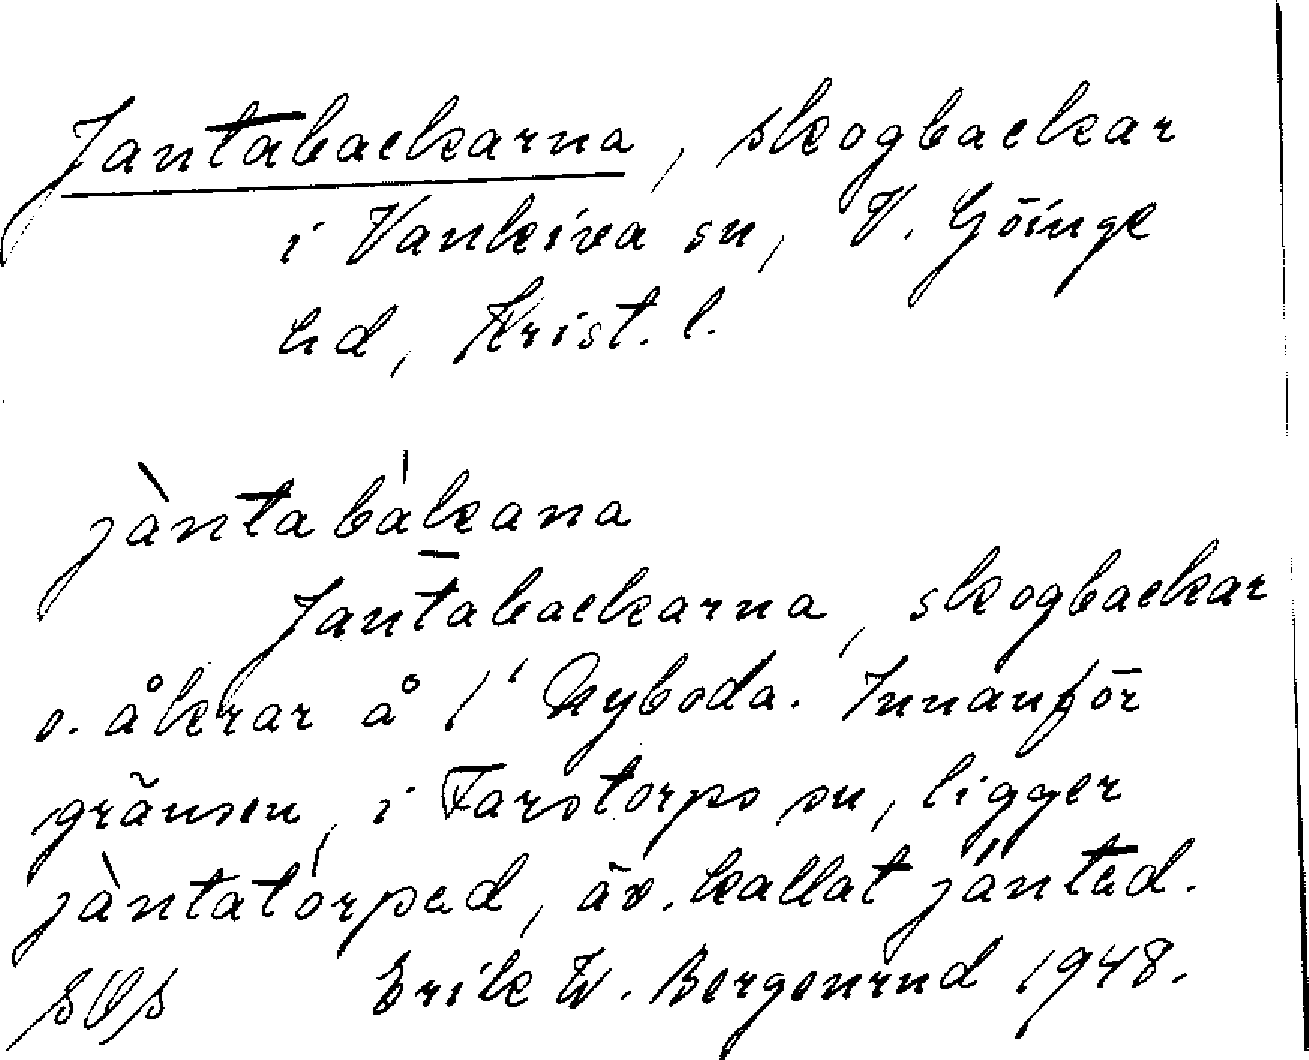 Jantabackarna, skogbackar
i Vankiva sn, V. Göinge
hd, Krist. l.
jàntabàkana
Jantabackarna, skogbackar
o. åkrar å 1' Nyboda. Innanför
gränsen, i Farstorps sn, ligger
jàntatòrped, äv. kallat jánted.
Erik W. Bergenrud 1948.